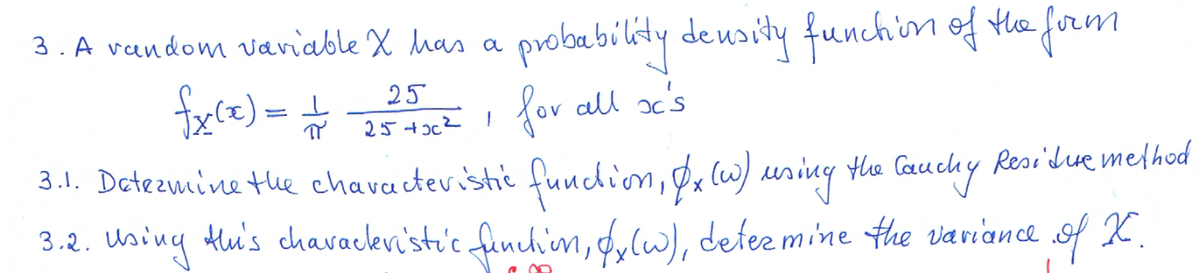 3. A random variable X has a probability density function of the form
f_X(x) = 1/π 25/(25 + x²), for all x's
3.1. Determine the characteristic function, ϕ_x(ω) using the Cauchy Residue method
3.2. Using this characteristic function, ϕ_x(ω), determine the variance of X.